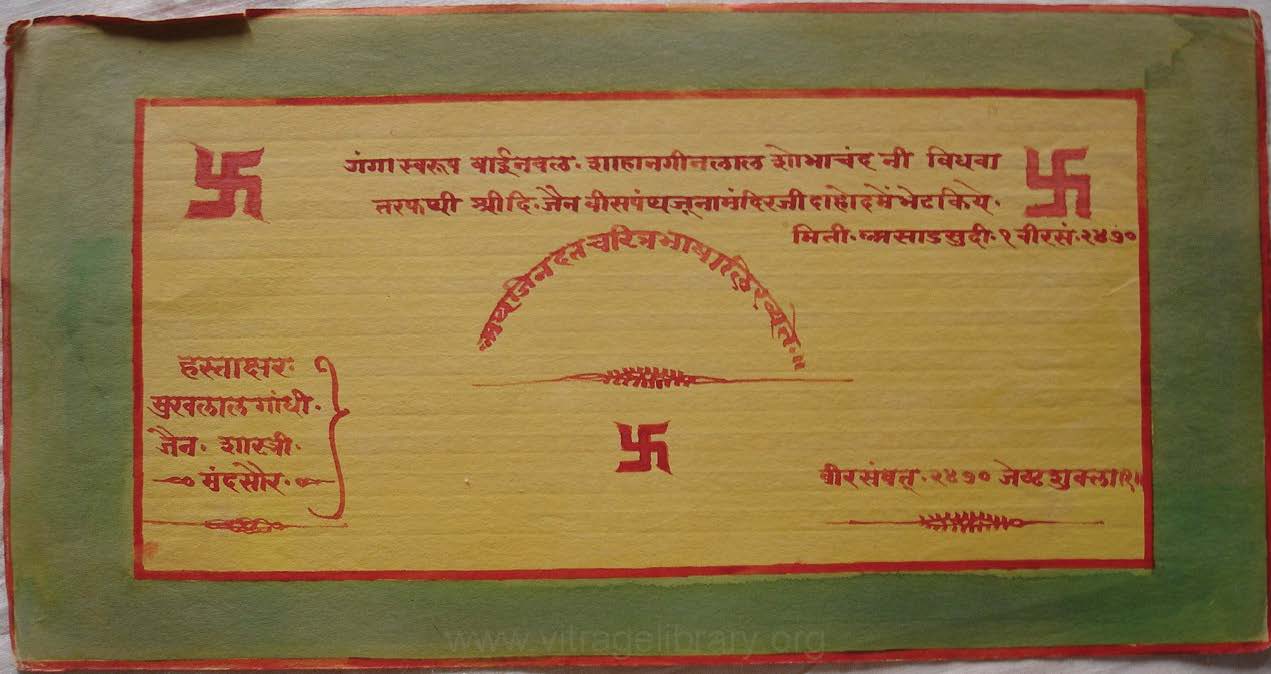 गंगा स्वरूप बाईनवल. शाहानगीनलाल शोभाचंद नी विधवा
तरफथी श्री दि. जैन वीसपंथ जूनामंदिरजी दाहोदमें भेट किये.
मिती. असाड सुदी. १ वीरसं. २४७०
॥अथ जिनदत चरित्र भाषा लिख्यते.॥
हस्ताक्षर.
सुखलाल गांधी.
जैन. शास्त्री.
मंदसौर.
वीरसंवत्. २४७० जेष्ट शुक्ला॥९॥
www.vitragelibrary.org